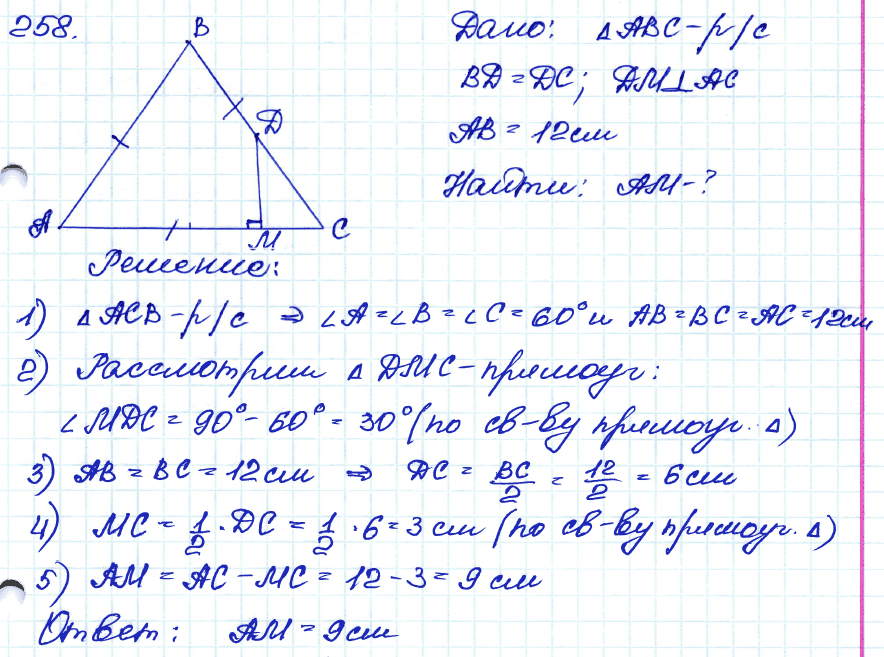 258.
B
Д
A
M
C
Дано: △ABC-р/с
BД = ДC; ДM⊥AC
AB = 12см
Найти: AM-?
Решение:
1) △ACB-р/с ⇒ ∠A=∠B=∠C=60° и AB=BC=AC=12см
2) Рассмотрим △ДMC-прямоуг:
∠MДC = 90°-60° = 30° (по св-ву прямоуг. △)
3) AB = BC = 12см ⇒ ДC = BC/2 = 12/2 = 6см
4) MC = 1/2 · ДC = 1/2 · 6 = 3 см (по св-ву прямоуг. △)
5) AM = AC - MC = 12 - 3 = 9 см
Ответ: AM = 9см